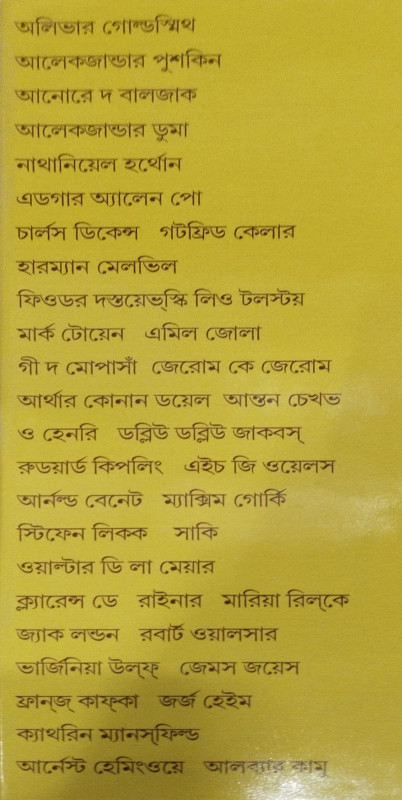 অলিভার গোল্ডস্মিথ
আলেকজান্ডার পুশকিন
আনোরে দ বালজাক
আলেকজান্ডার ডুমা
নাথানিয়েল হর্থোন
এডগার অ্যালেন পো
চার্লস ডিকেন্স গটফ্রিড কেলার
হারম্যান মেলভিল
ফিওডর দস্তয়েভ্স্কি লিও টলস্টয়
মার্ক টোয়েন এমিল জোলা
গী দ মোপাসাঁ জেরোম কে জেরোম
আর্থার কোনান ডয়েল আন্তন চেখভ
ও হেনরি ডব্লিউ ডব্লিউ জাকবস্
রুডয়ার্ড কিপলিং এইচ জি ওয়েলস
আর্নল্ড বেনেট ম্যাক্সিম গোর্কি
স্টিফেন লিকক সাকি
ওয়াল্টার ডি লা মেয়ার
ক্ল্যারেন্স ডে রাইনার মারিয়া রিল্‌কে
জ্যাক লন্ডন রবার্ট ওয়ালসার
ভার্জিনিয়া উল্‌ফ্ জেমস জয়েস
ফ্রান্‌জ্ কাফ্‌কা জর্জ হেইম
ক্যাথরিন ম্যানস্‌ফিল্ড
আর্নেস্ট হেমিংওয়ে আলব্যার কামু